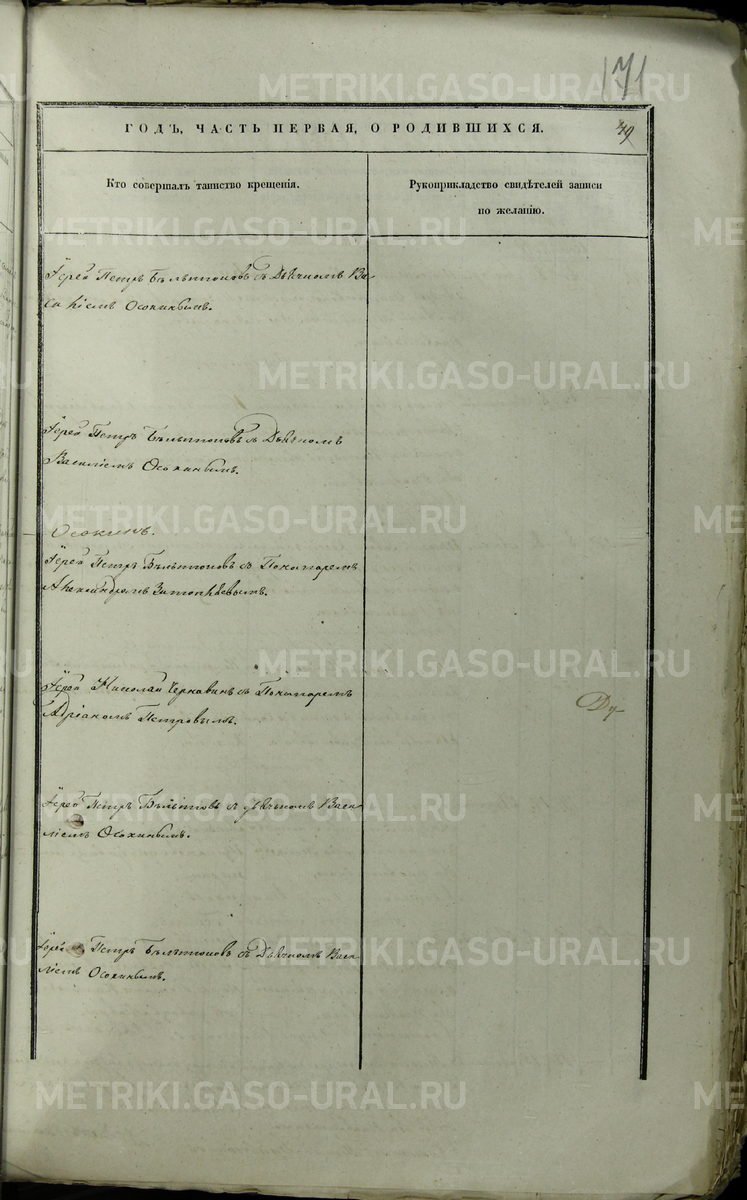 171
ГОДЪ, ЧАСТЬ ПЕРВАЯ, О РОДИВШИХСЯ.
49
Кто совершалъ таинство крещенія.
Рукоприкладство свидѣтелей записи
по желанію.
Іерей Петръ съ Дьячкомъ Ва-
силіемъ Осокинымъ.
Іерей Петръ съ Дьячкомъ
Василіемъ Осокинымъ.
Осокинъ.
Іерей Петръ съ Пономаремъ
Александромъ
Іерей Николай съ Пономаремъ
Адріаномъ Петровымъ.
Іерей Петръ съ дьячкомъ Васи-
ліемъ Осокинымъ.
Іерей Петръ съ Дьячкомъ Васи-
ліемъ Осокинымъ.
METRIKI.GASO-URAL.RU